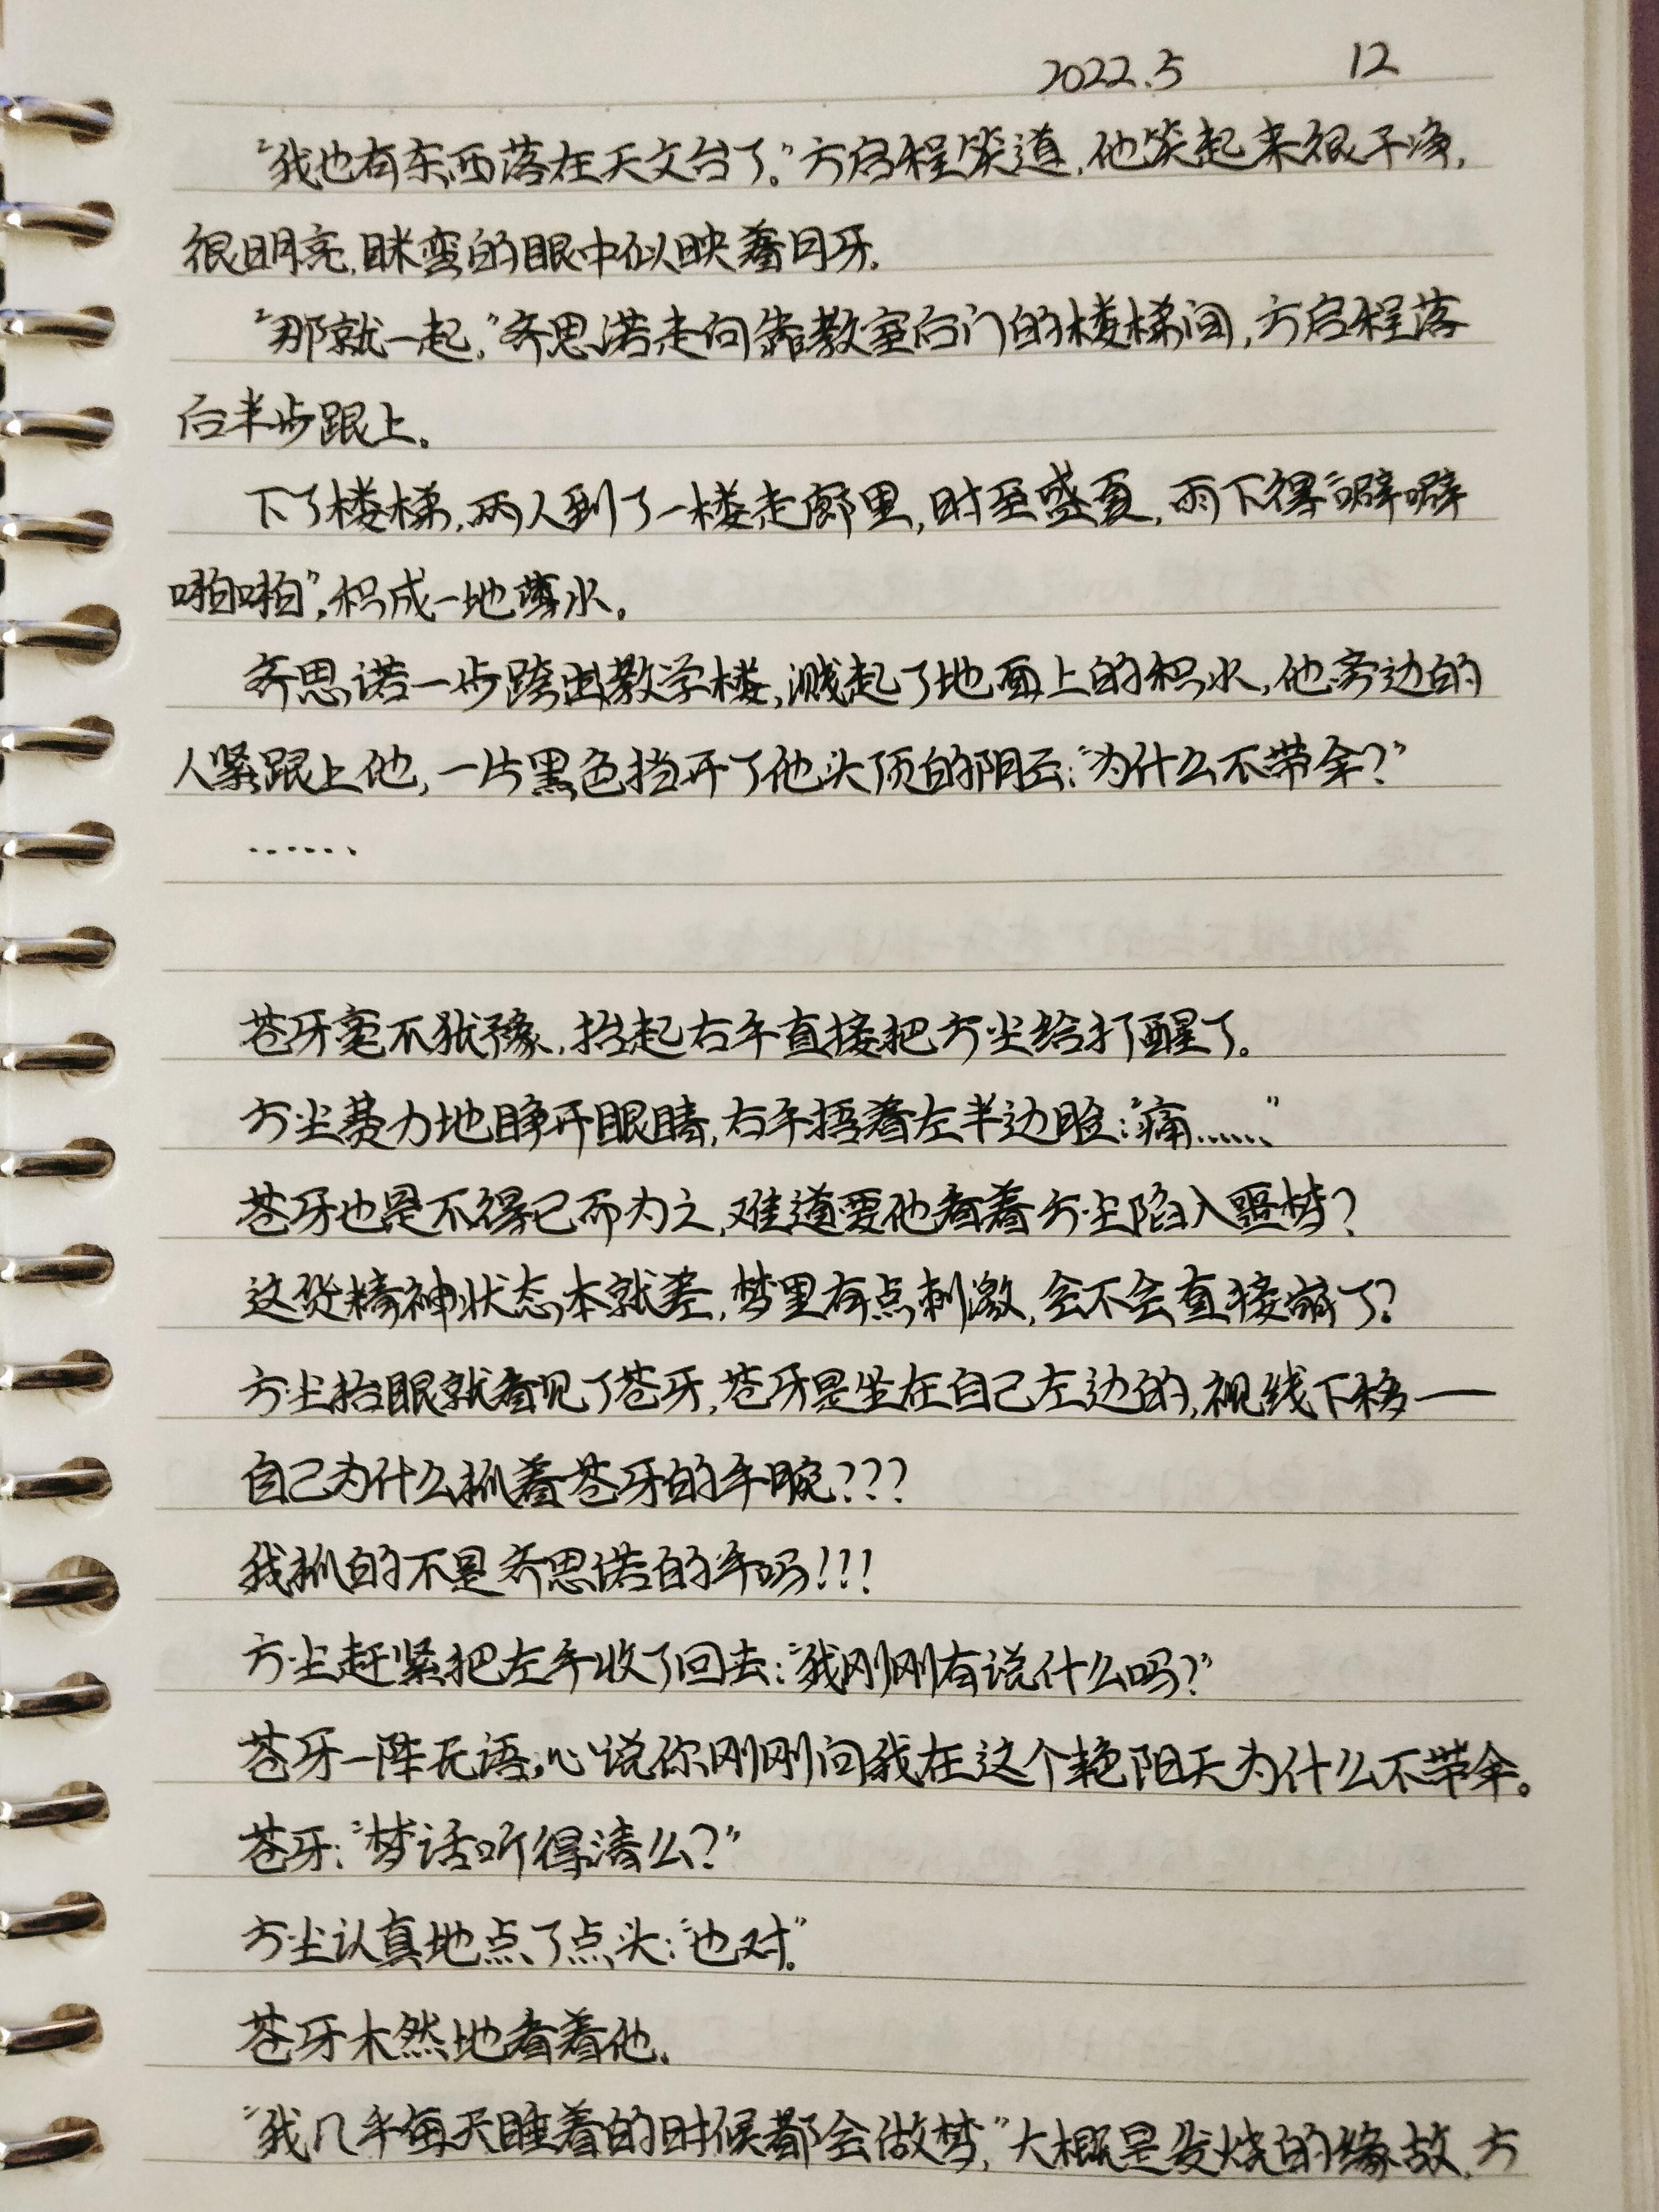 2022.5 12
“我也有东西落在天文台了。”方启程笑道,他笑起来很干净,
很明亮,眯弯的眼中似映着月牙。
“那就一起,”齐思诺走向靠教室后门的楼梯间,方启程落
后半步跟上。
下了楼梯,两人到了一楼走廊里,时至盛夏,雨下得“噼噼
啪啪”,积成一地薄水。
齐思诺一步跨出教学楼,溅起了地面上的积水,他旁边的
人紧跟上他,一片黑色挡开了他头顶的阴云:“为什么不带伞?”
……
苍牙毫不犹豫,抬起右手直接把方尘给打醒了。
方尘费力地睁开眼睛,右手捂着左半边脸:“痛……”
苍牙也是不得已而为之,难道要他看着方尘陷入噩梦?
这货精神状态本就差,梦里有点刺激,会不会直接崩了?
方尘抬眼就看见了苍牙,苍牙是坐在自己左边的,视线下移——
自己为什么抓着苍牙的手腕???
我抓的不是齐思诺的手吗!!!
方尘赶紧把左手收了回去:“我刚刚有说什么吗?”
苍牙一阵无语,心说你刚刚问我在这个艳阳天为什么不带伞。
苍牙:“梦话听得清么?”
方尘认真地点了点头:“也对。”
苍牙木然地看着他。
“我几乎每天睡着的时候都会做梦,”大概是发烧的缘故,方